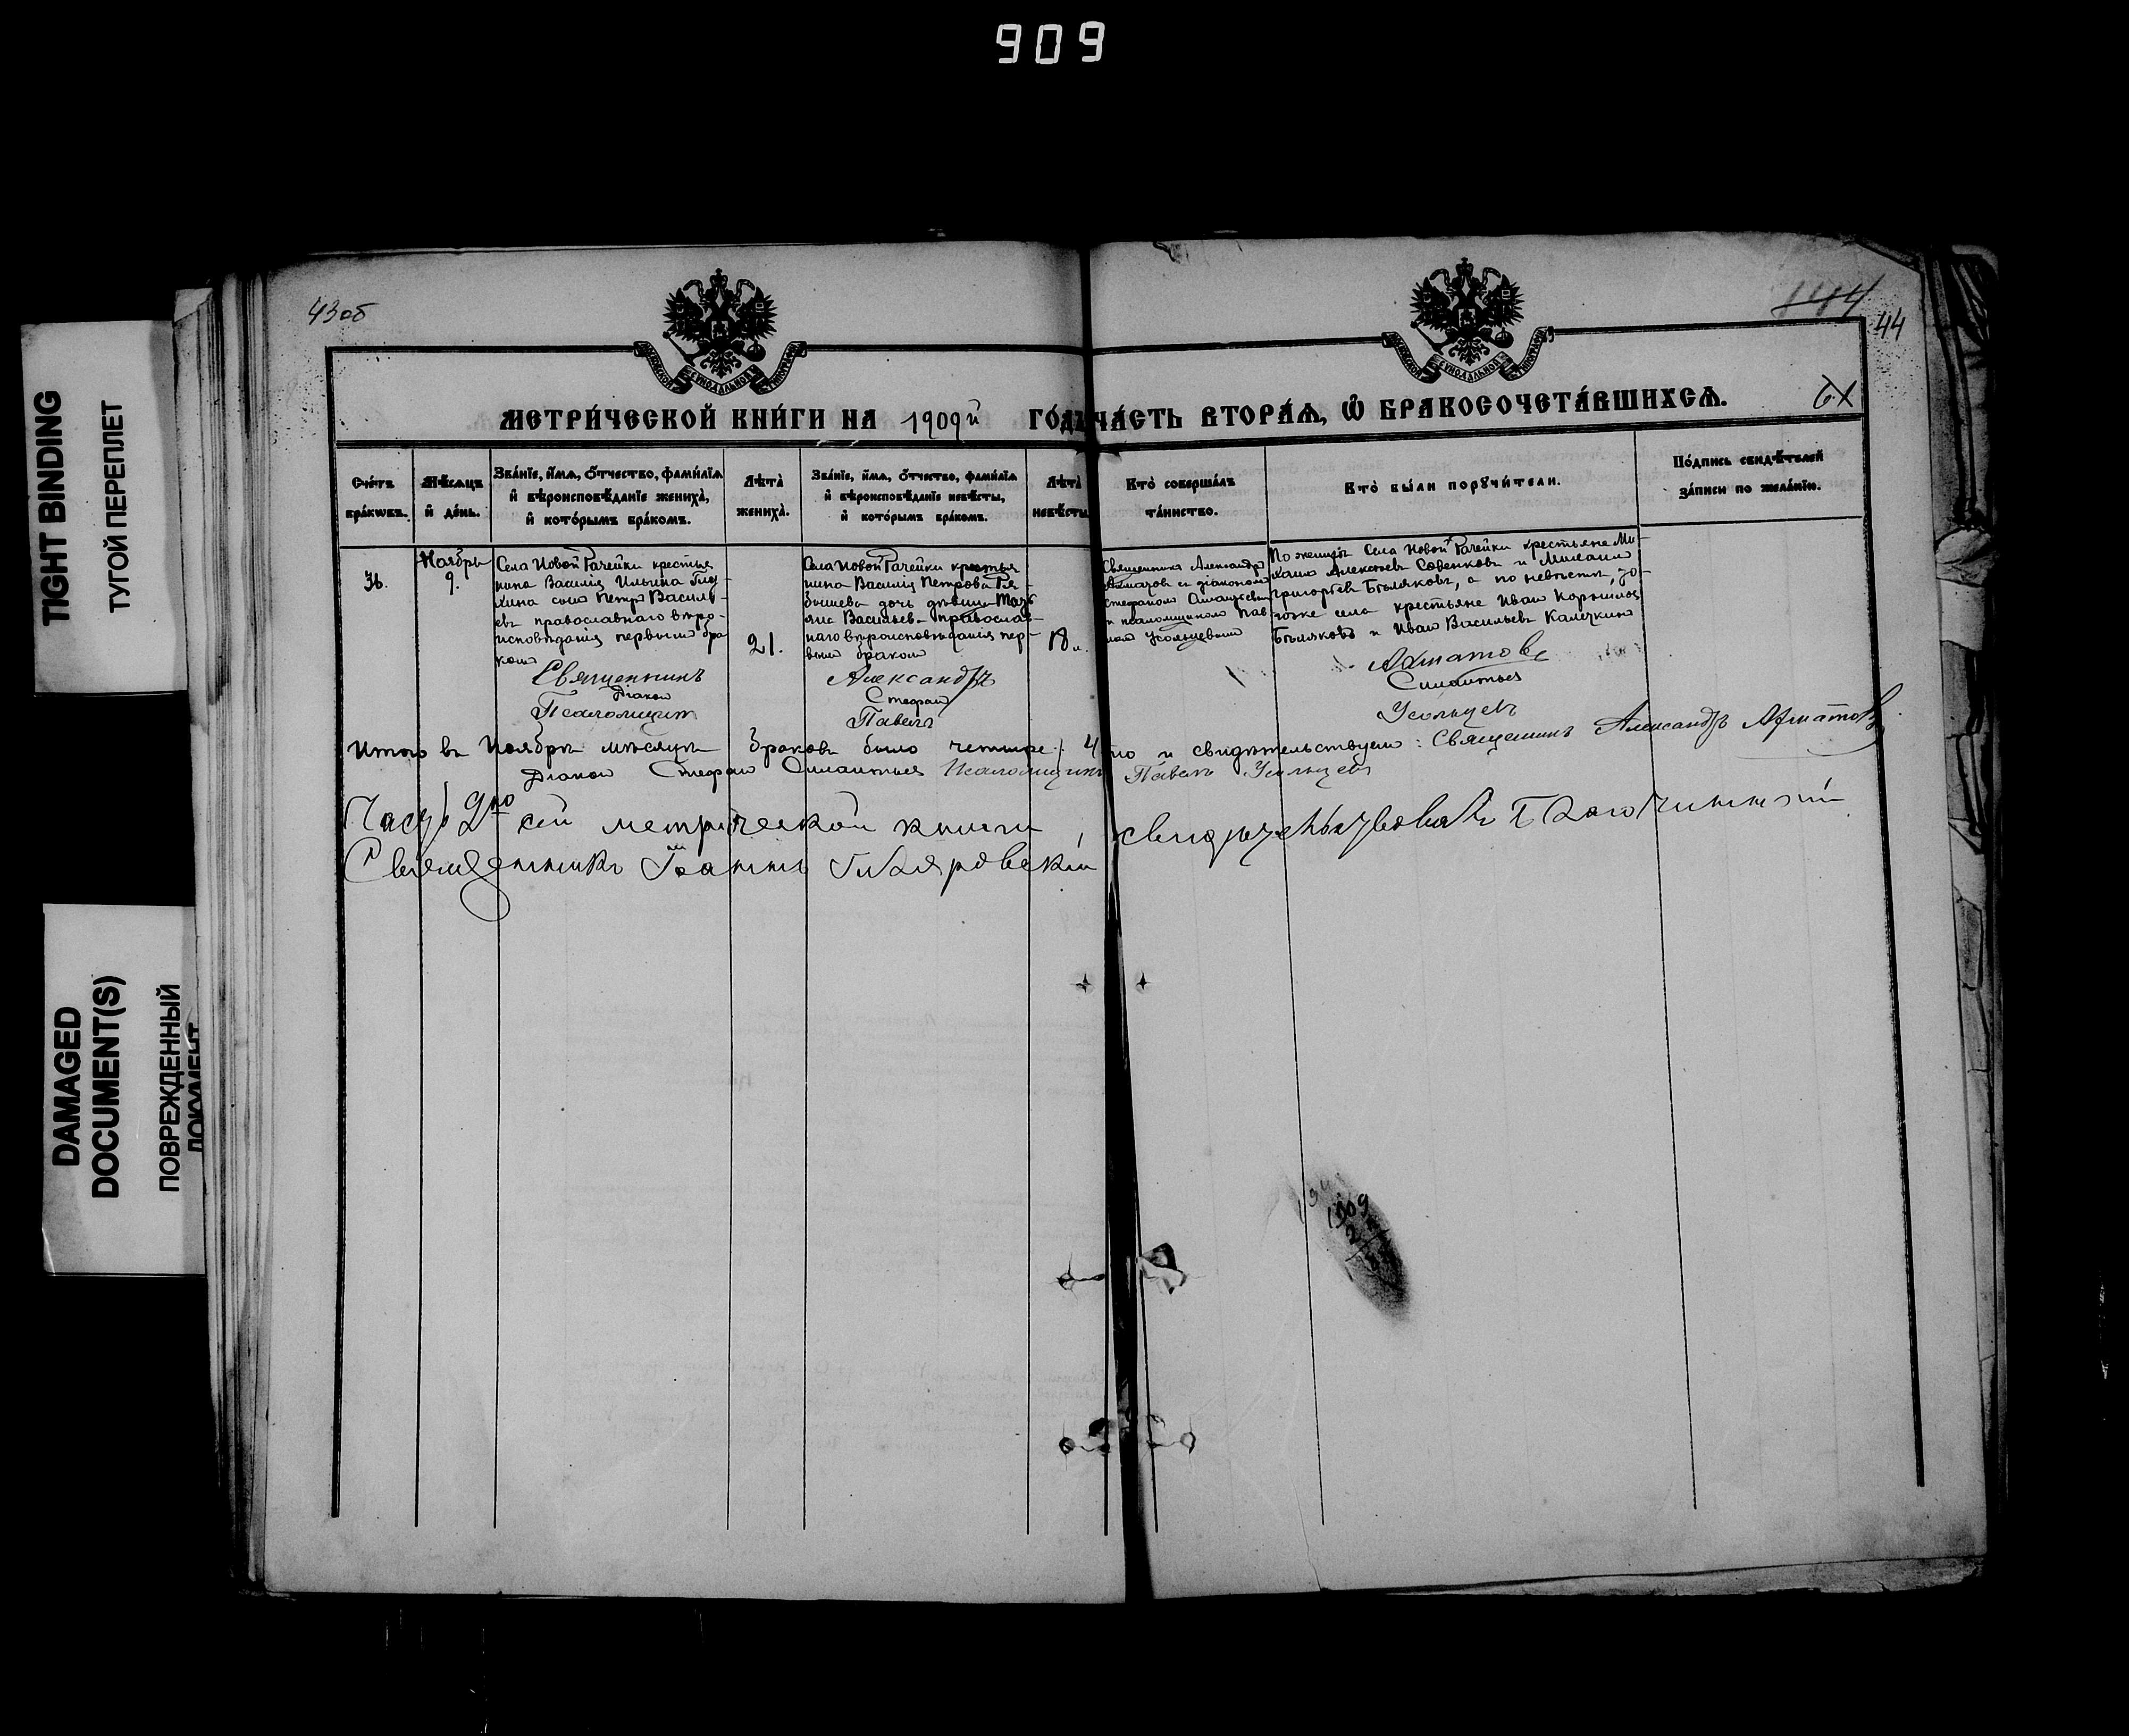 909
TIGHT BINDING
ТУГОЙ ПЕРЕПЛЕТ
DAMAGED
DOCUMENT(S)
ПОВРЕЖДЕННЫЙ
ДОКУМЕНТ
43об
144
44
МЕТРИ́ЧЕСКОЙ КНИ́ГИ НА 1909й ГО́ДЪ ЧА́СТЬ ВТОРА́Ѧ, Ѽ БРАКОСОЧЕТА́ВШИХСѦ.
Сче́тъ бра́кѡвъ.
Мѣ́сѧцъ и҆ де́нь.
Зва́нїе, и҆́мѧ, ѻ҆́тчество, фами́лїѧ и҆ вѣроисповѣ́данїе жениха̀, и҆ кото́рымъ бра́комъ.
Лѣ́та жениха̀.
Зва́нїе, и҆́мѧ, ѻ҆́тчество, фами́лїѧ и҆ вѣроисповѣ́данїе невѣ́сты, и҆ кото́рымъ бра́комъ.
Лѣ́та невѣ́сты
Кто̀ соверша́лъ та́инство.
Кто̀ бы́ли порꙋчи́тели.
По́дпись свидѣ́телей за́писи по жела́нїю.
Ноябрь
9.
Села Новой Рачейки крестья
нина Василія Ильина
сынъ Петръ Василь-
евъ православнаго вѣро-
исповѣданія первымъ бра
комъ
21.
Села Новой Рачейки крестья
нина Василія Петрова
дочь дѣвица
Васильева православ-
наго вѣроисповѣданія пер-
вымъ бракомъ
18
Священникъ Александръ
Ахматовъ и діакономъ
Стефаномъ
и псаломщикомъ Пав
ломъ Усольцевымъ
По женихѣ Села Новой Рачейки крестьяне Ми-
хаилъ Алексѣевъ и
Григорьевъ Бѣляковъ, а по невѣстѣ, то-
гоже села крестьяне Иванъ
Бѣляковъ и Иванъ Васильевъ Калечкинъ
Священникъ Александръ Ахматовъ
Діаконъ Стефанъ Силантьевъ
Псаломщикъ Павелъ Усольцевъ
Итого въ Ноябрѣ мѣсяцѣ браковъ было четыре /. 4 то и свидѣтельствуемъ: Священникъ Александръ Ахматовъ
Діаконъ Стефанъ Силантьевъ Псаломщикъ Павелъ Усольцевъ
Часть 2ую сей метрической книги, свидѣтельствовалъ Благочинный
Священникъ Іоаннъ
1909